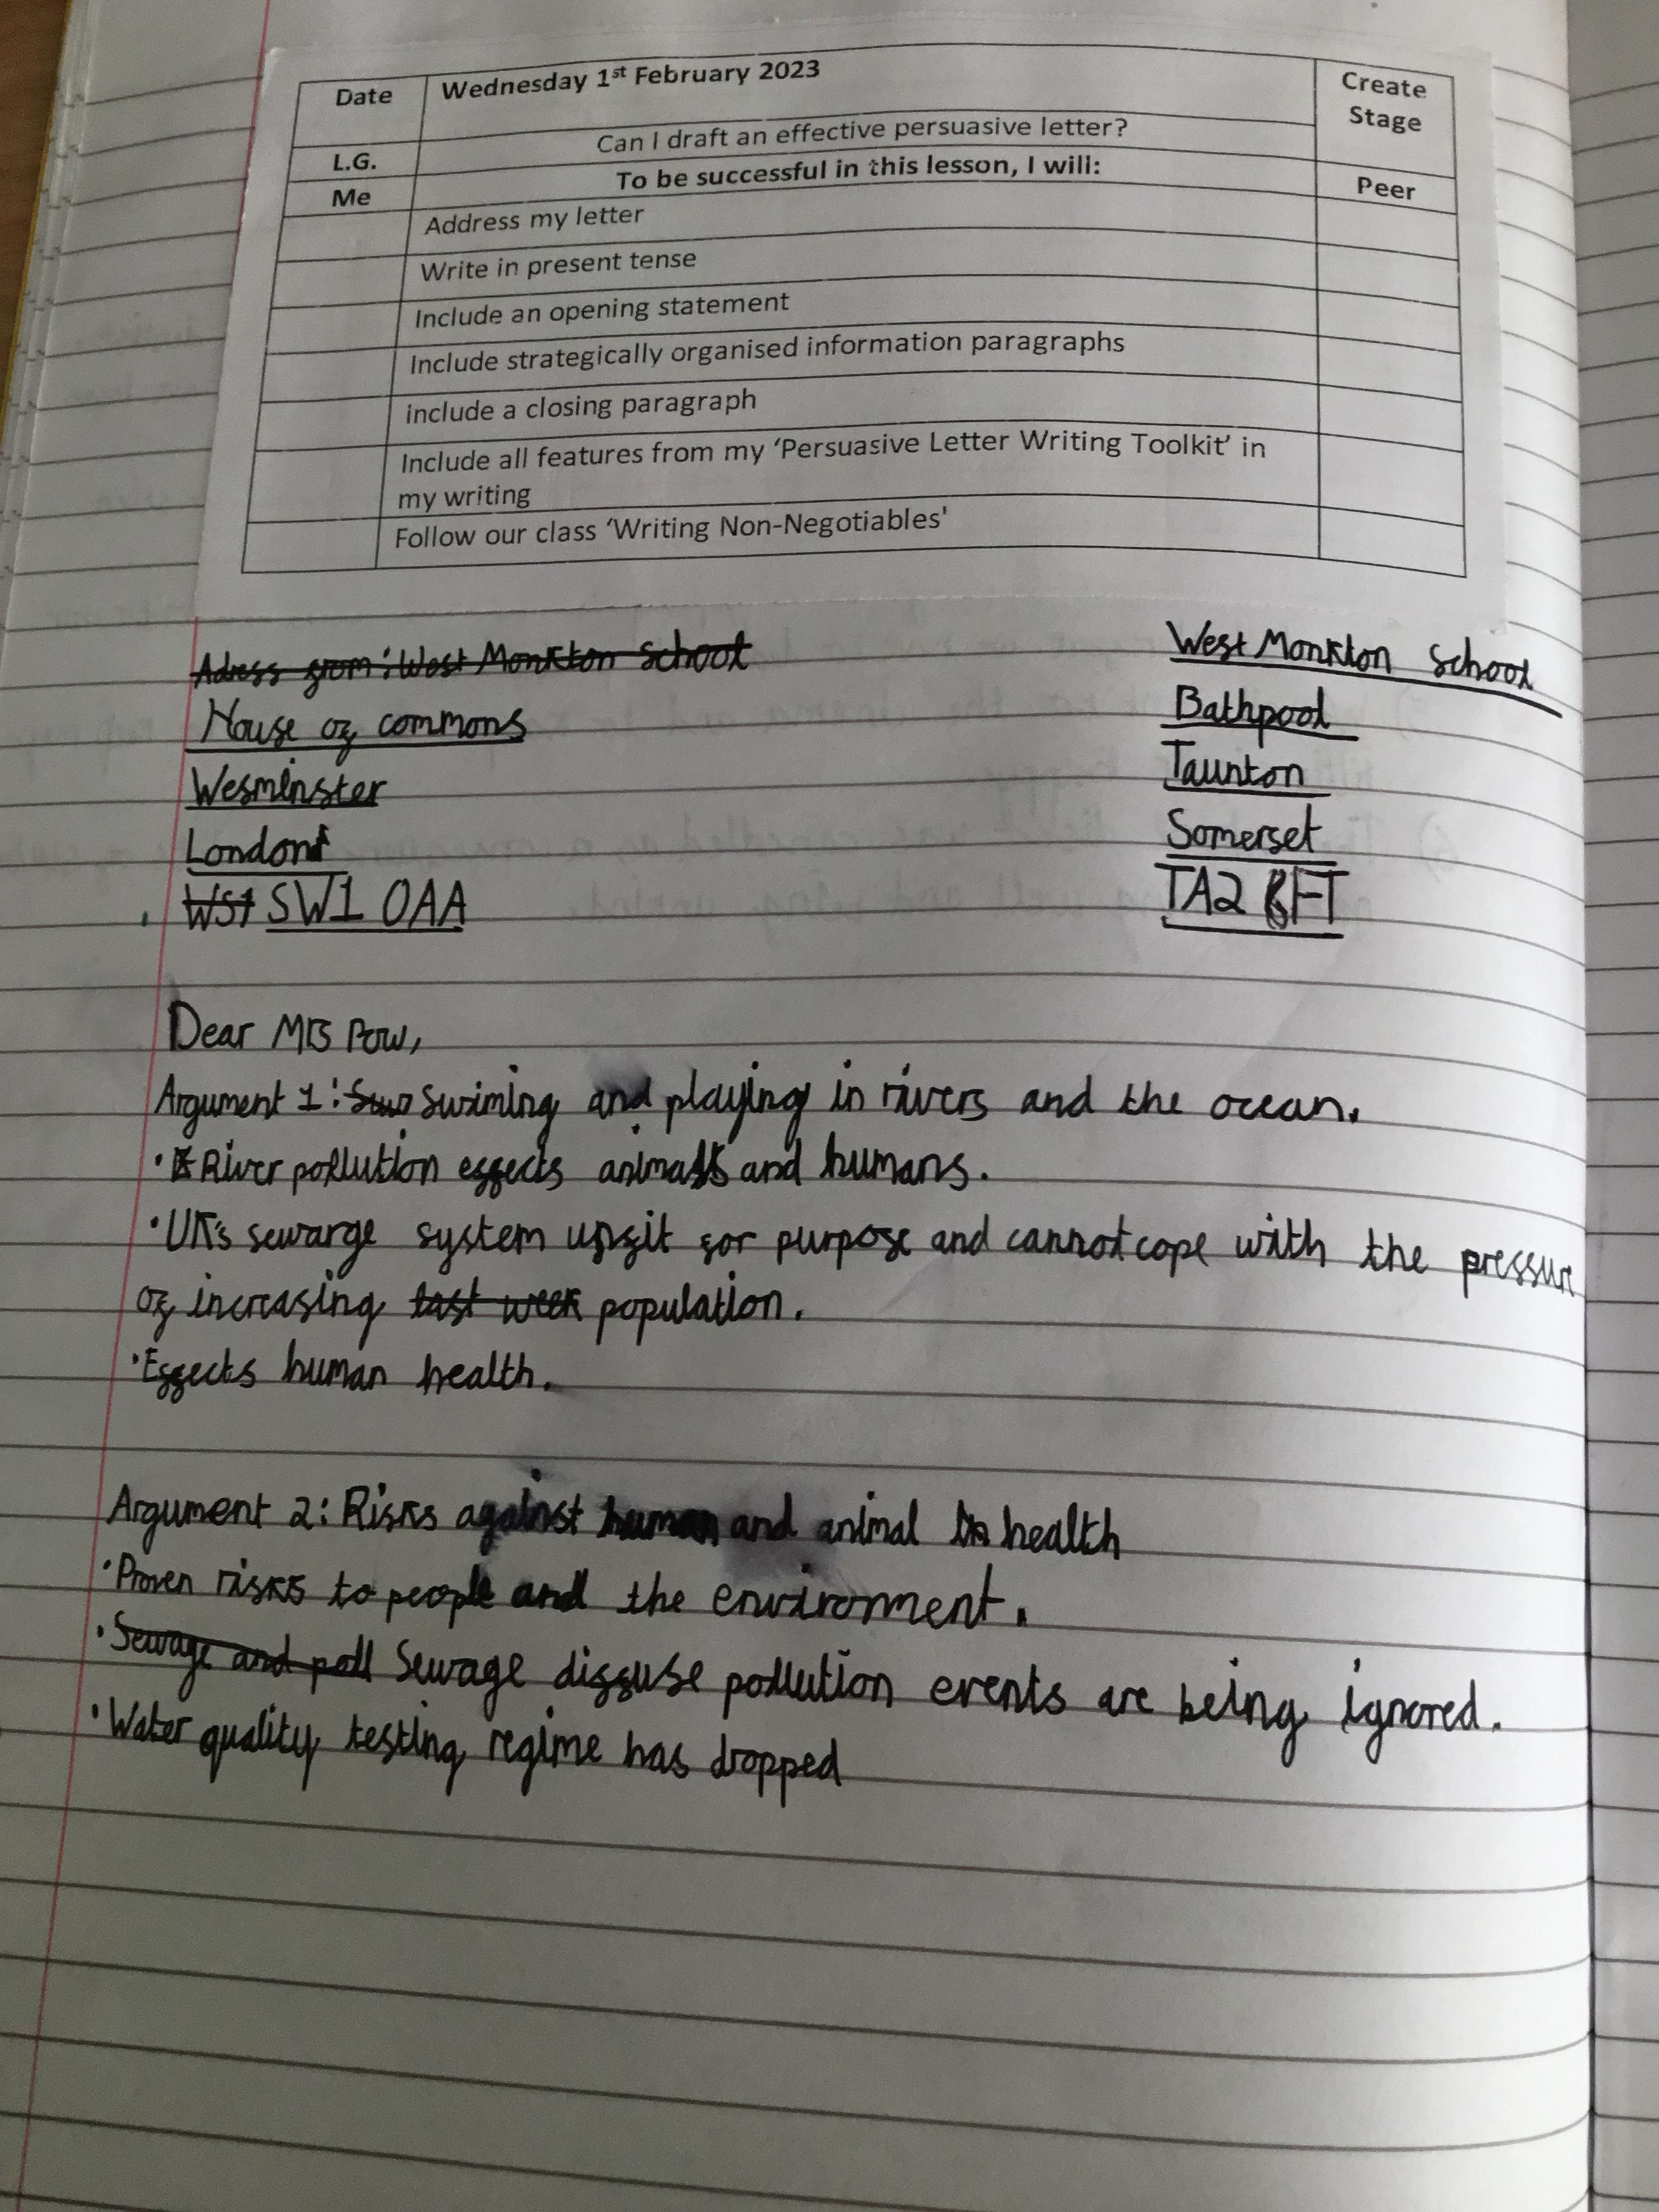 Date Wednesday 1st February 2023 Create Stage
L.G. Can I draft an effective persuasive letter?
Me To be successful in this lesson, I will: Peer
Address my letter
Write in present tense
Include an opening statement
Include strategically organised information paragraphs
include a closing paragraph
Include all features from my ‘Persuasive Letter Writing Toolkit’ in
my writing
Follow our class ‘Writing Non-Negotiables'
Adress from: West Monkton School
House of commons
Wesminster
London
WS1 SW1 0AA
West Monkton School
Bathpool
Taunton
Somerset
TA2 8FT
Dear Mrs Pow,
Argument 1: Swimming and playing in rivers and the ocean.
• River pollution effects animals and humans.
• UK's sewarge system unfit for purpose and cannot cope with the pressure
of increasing last week population.
• Effects human health.
Argument 2: Risks against human and animal health
• Proven risks to people and the environment.
• Sewage and poll Sewage diffuse pollution events are being ignored.
• Water quality testing regime has dropped